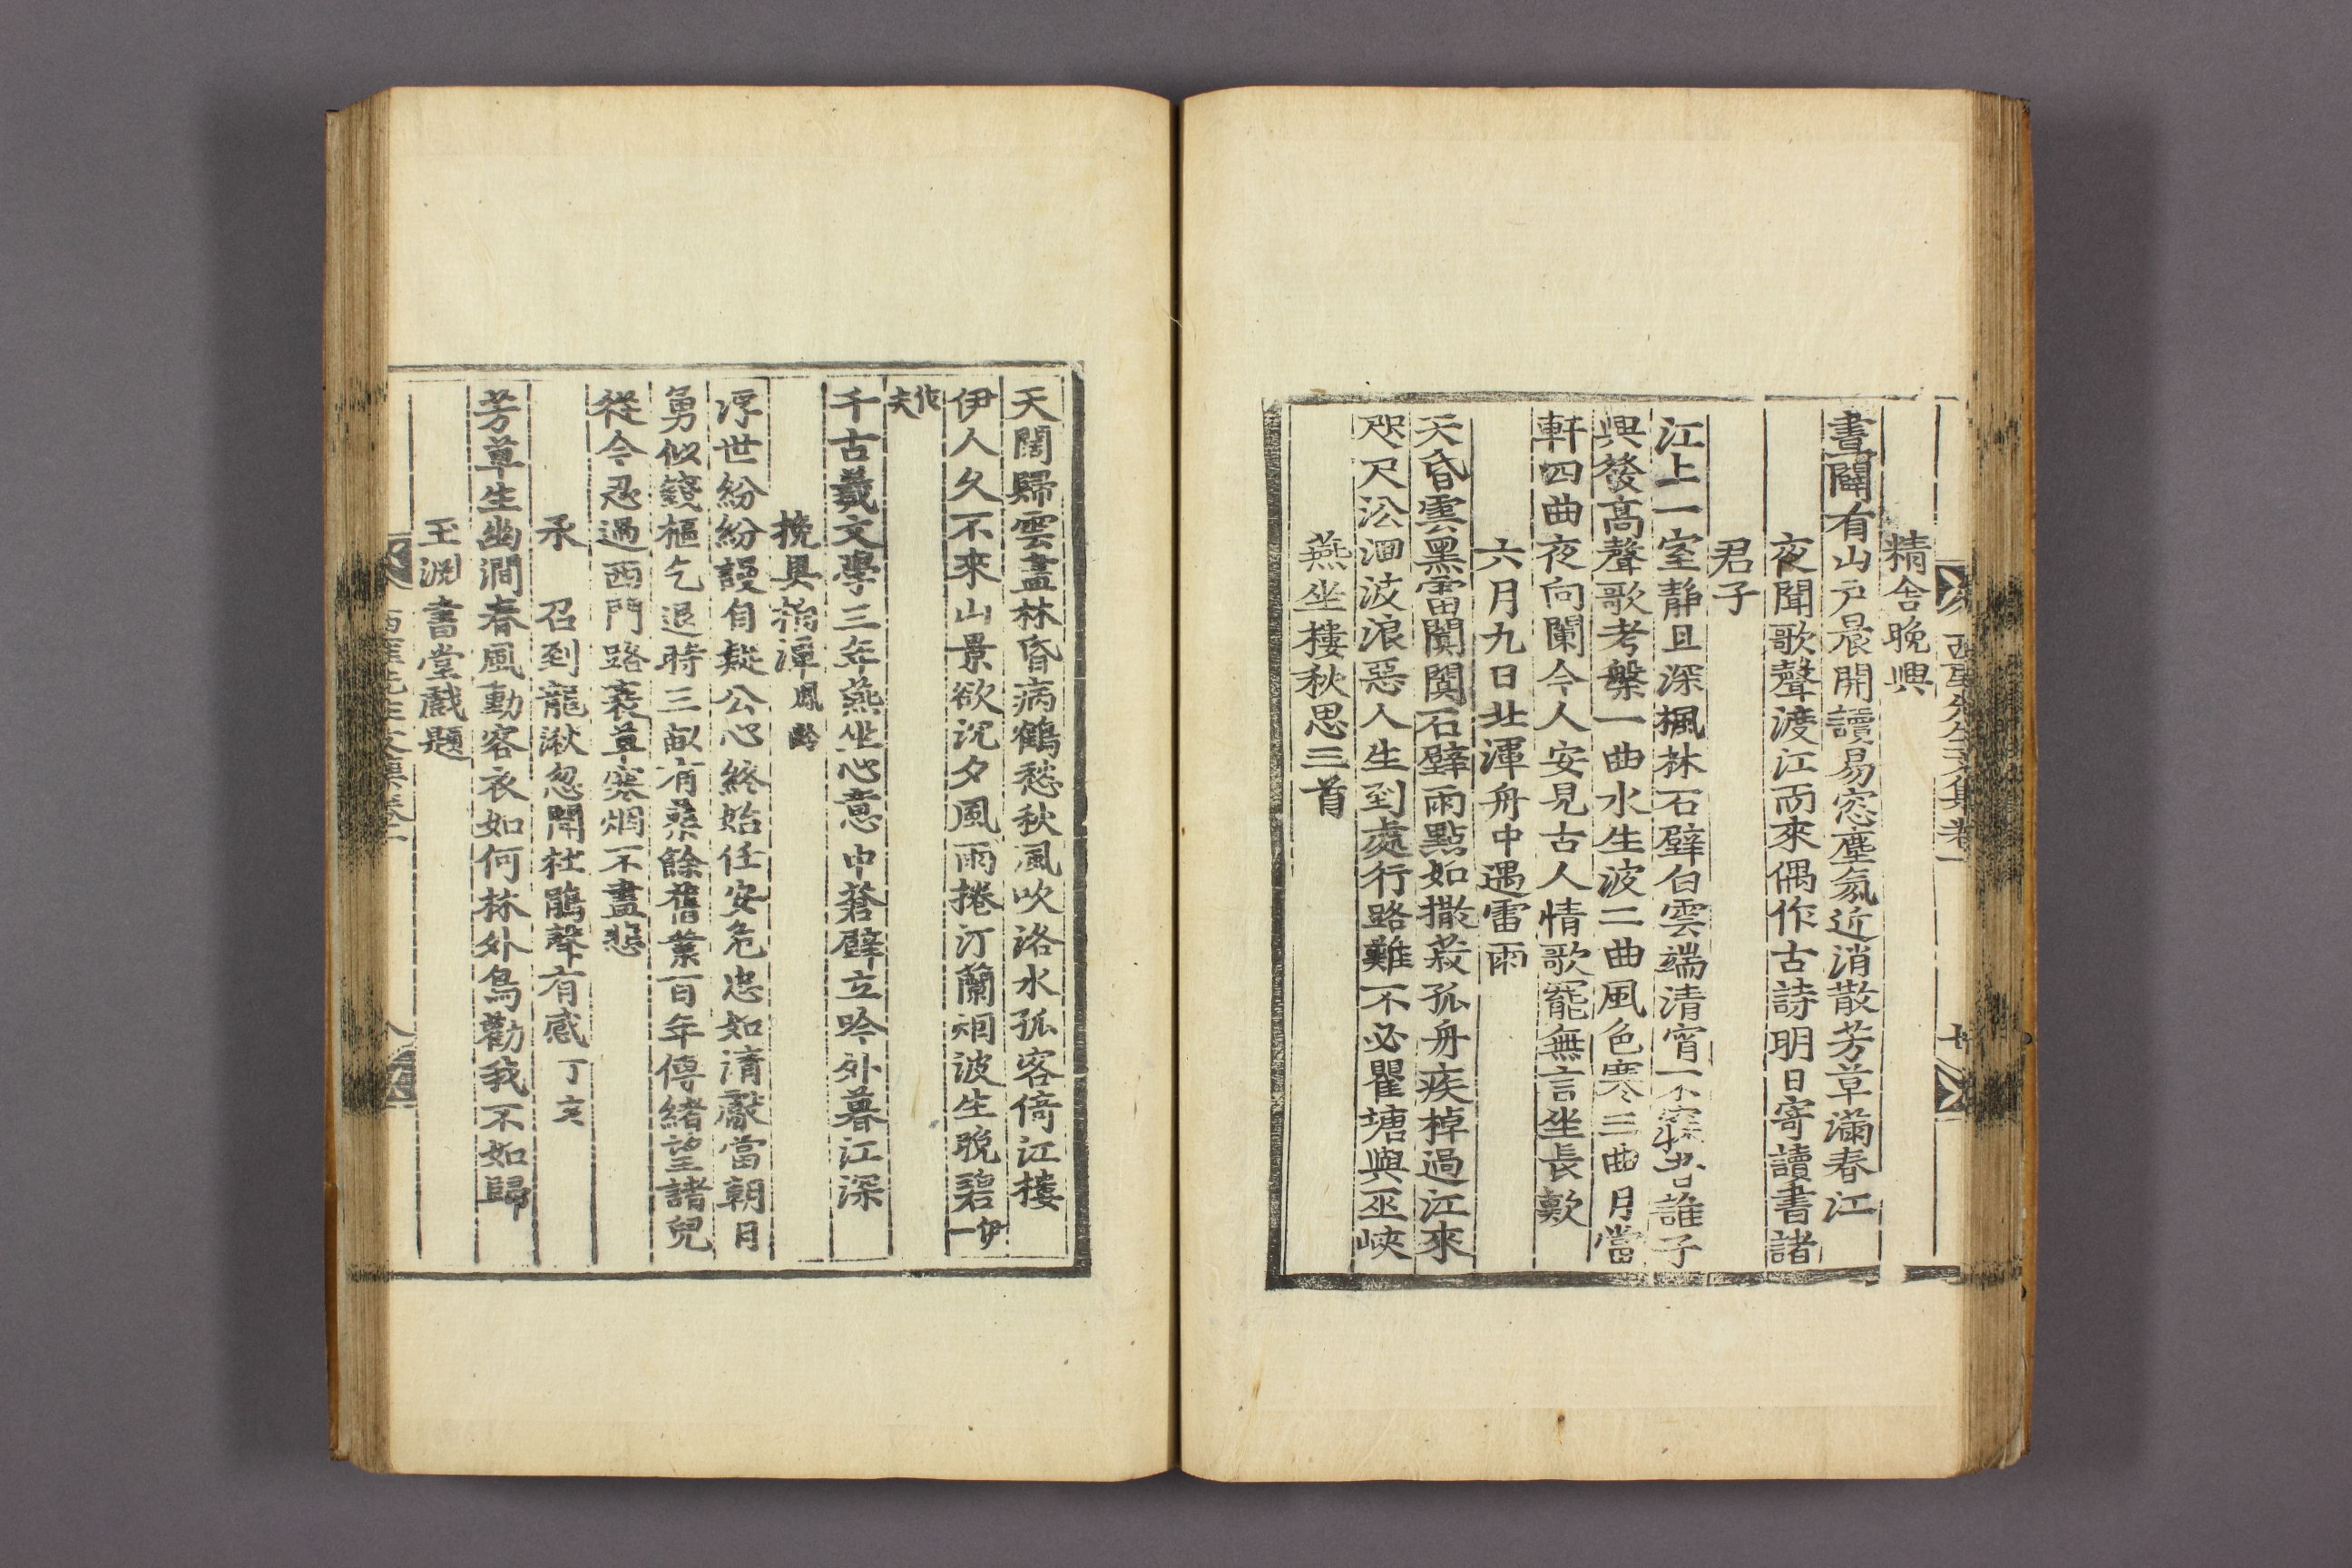 西厓先生文集卷一 十
精舍晚興
晝闔有山戶晨開讀易窓塵氛近消散芳草滿春江
夜聞歌聲渡江而來偶作古詩明日寄讀書諸
君子
江上一室靜且深楓林石壁白雲端清宵不寐者誰子
興發高聲歌考槃一曲水生波二曲風色寒三曲月當
軒四曲夜向闌今人安見古人情歌罷無言坐長歎
六月九日北潭舟中遇雷雨
天昏雲黑雷闐闐石壁雨點如撒菽孤舟疾棹過江來
咫尺沿洄波浪惡人生到處行路難不必瞿塘與巫峽
燕坐樓秋思三首
天闊歸雲盡林昏病鶴愁秋風吹洛水孤客倚江樓
伊人久不來山景欲沉夕風雨捲汀蘭烟波生晚碧伊一
作夫
千古羲文學三年燕坐心意中蒼壁立吟外暮江深
挽具栢潭鳳齡
浮世紛紛謾自疑公心終始任安危忠如淸獻當朝日
勇似錢樞乞退時三畝有桑餘舊業百年傳緖望諸兒
從今忍過西門路衰草寒烟不盡悲
承 召到龍湫忽聞杜鵑聲有感丁亥
芳草生幽澗春風動客衣如何林外鳥勸我不如歸
玉淵書堂戲題
西厓先生文集卷一